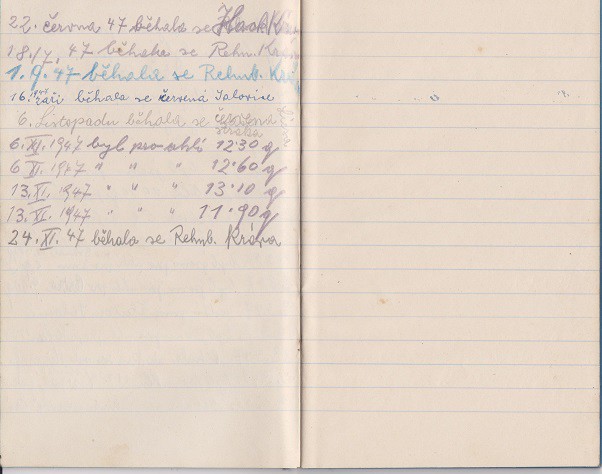 22. června 47 běhala se
18./7. 47 běhala se Rehn. Kráva
1.9.47 běhala se Rehnb. Kráva
16. září běhala se červená Jalovice
6. Listopadu běhala se červená
straka
6. XI. 1947 byl pro uhlí 12·30 q
6 XI. 1947 " " " 12·60 q
13. XI. 1947 " " " 13·10 q
13. XI. 1947 " " " 11·90 q
24. XI. 47 běhala se Rehnb. Kráva